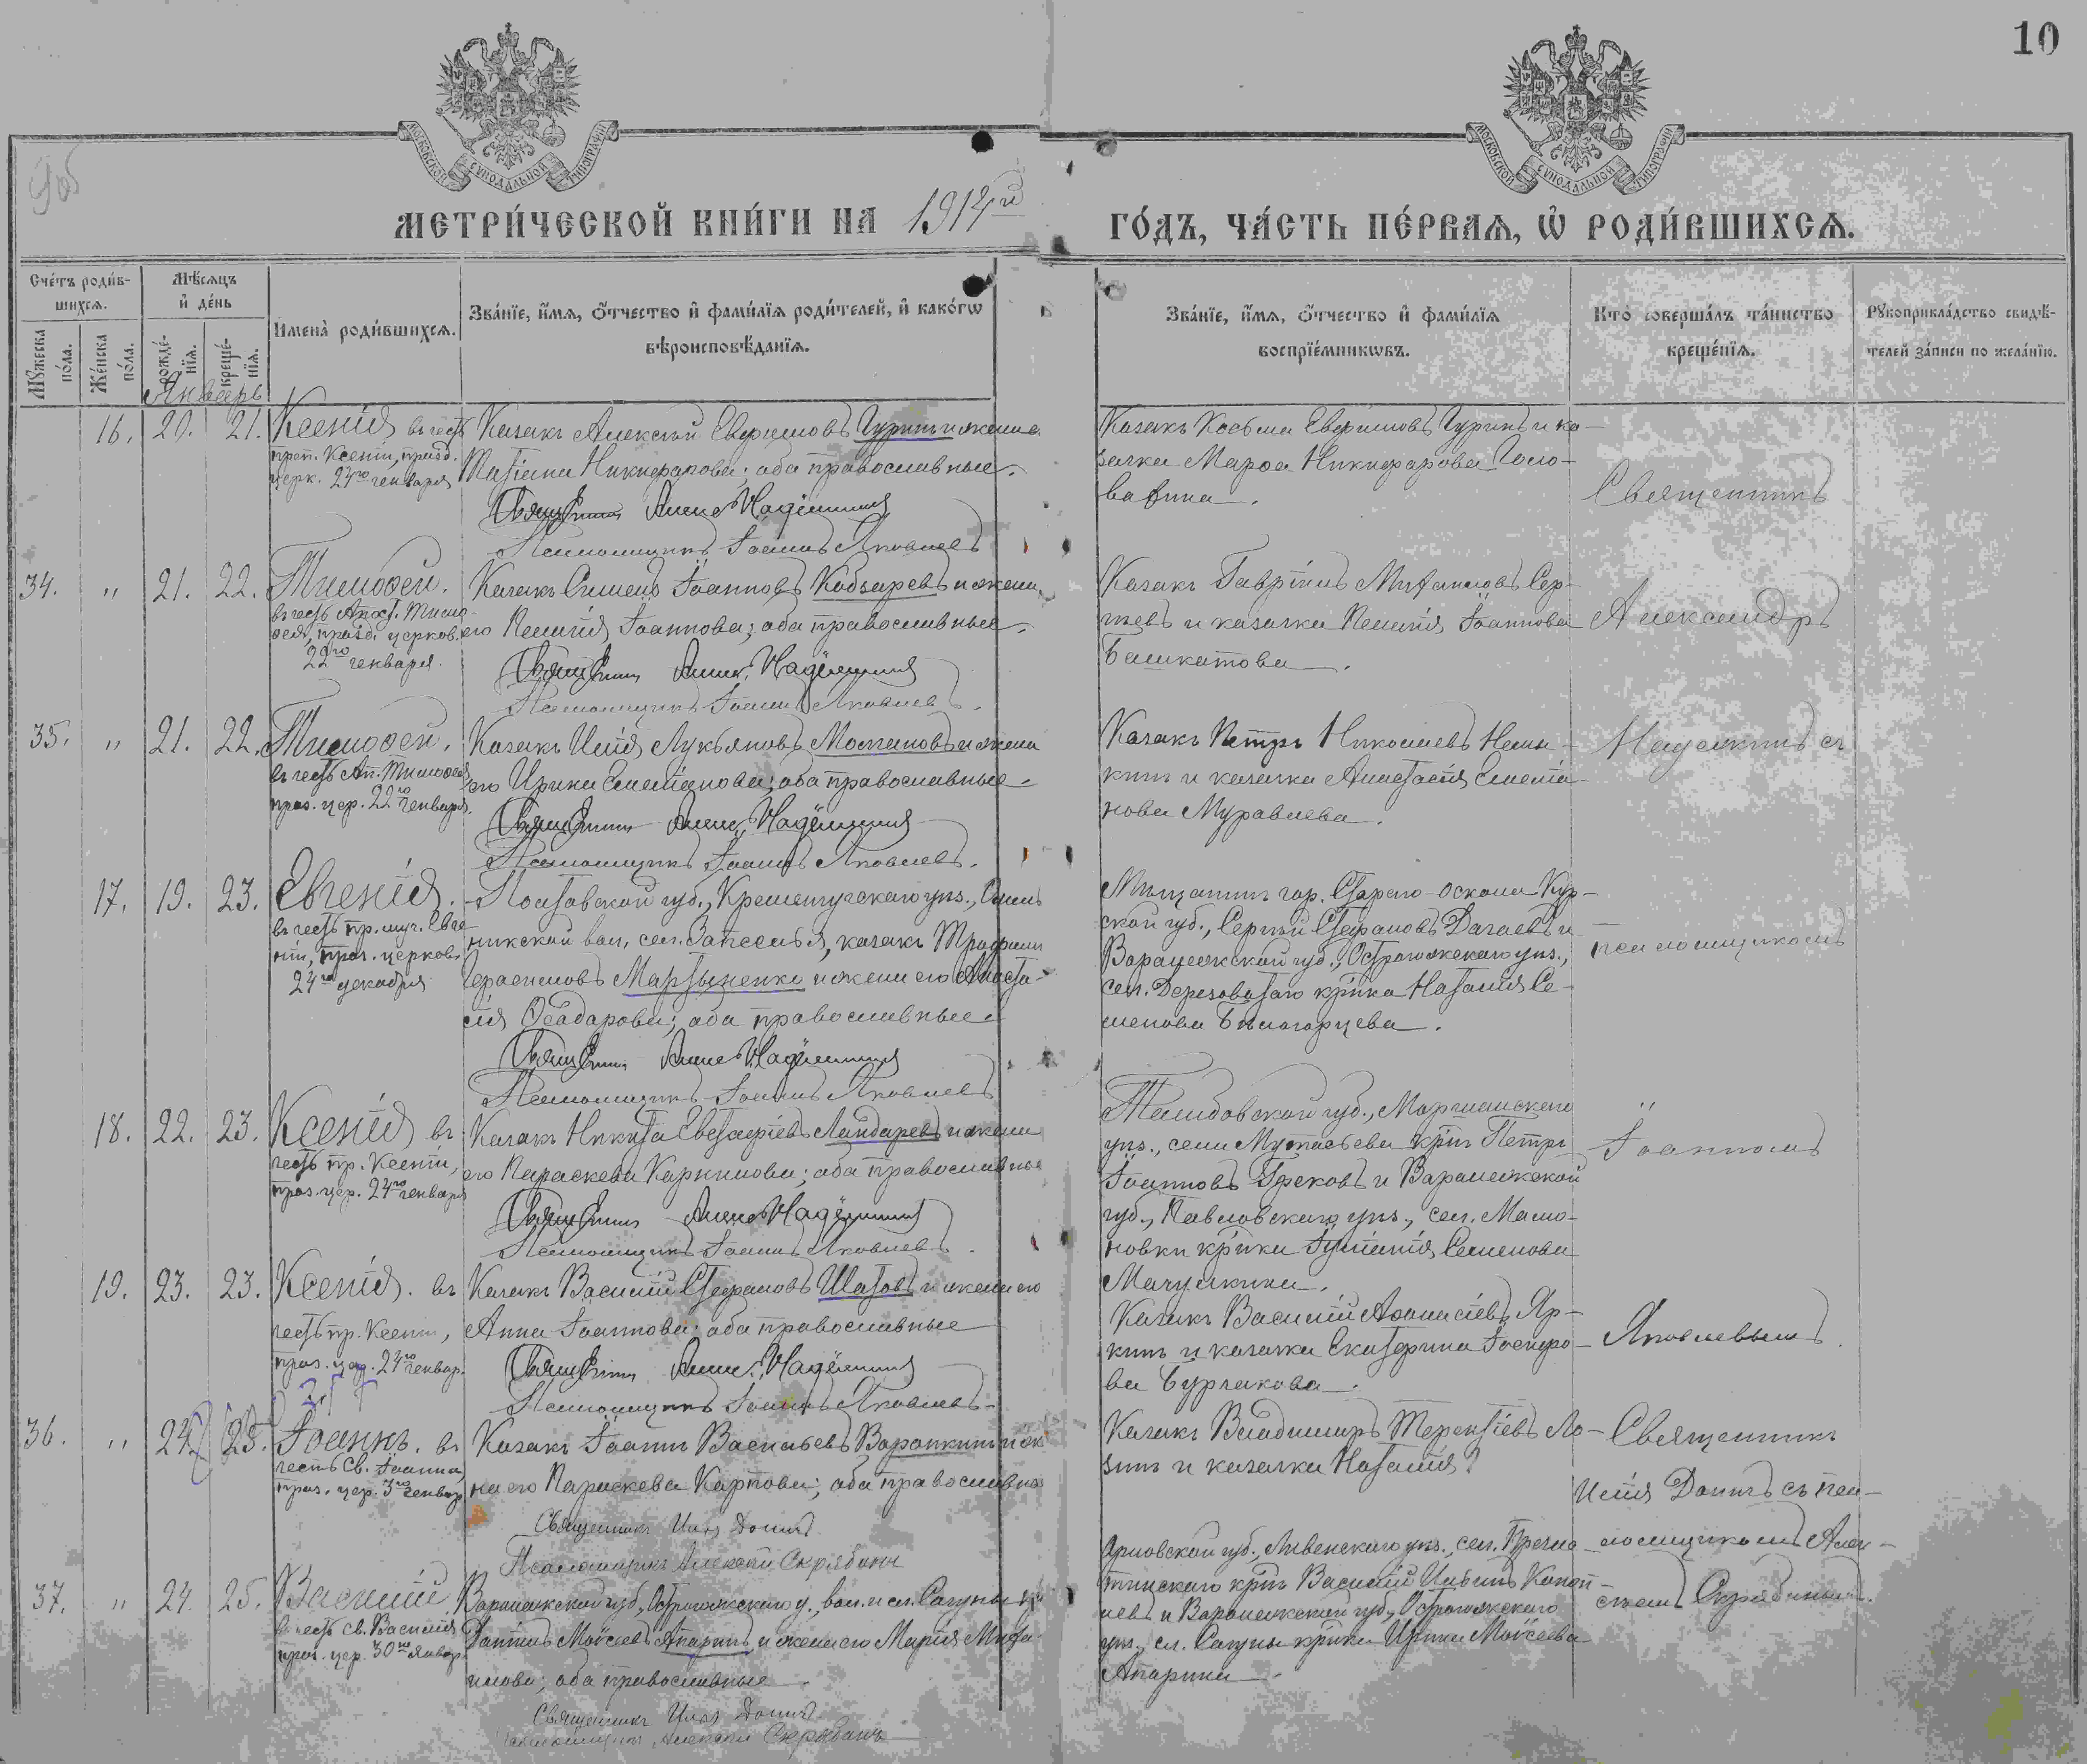 10
МОСКОВСКОЙ СѴНОДАЛЬНОЙ ТИПОГРАФІИ
МОСКОВСКОЙ СѴНОДАЛЬНОЙ ТИПОГРАФІИ
МЕТРИ́ЧЕСКОЙ КНИ́ГИ НА 1914й ГО́ДЪ, ЧА́СТЬ ПЕ́РВАѦ, Ѡ҆ РОДИ́ВШИХСѦ.
Сче́тъ роди́в-
шихсѧ.
Мѣ́сѧцъ
и҆ де́нь
Имена̀ роди́вшихсѧ.
Зва́нїе, и҆́мѧ, ѻ҆́тчество и҆ фами́лїѧ роди́телей, и҆ како́гѡ
вѣроисповѣ́данїѧ.
Зва́нїе, и҆́мѧ, ѻ҆́тчество и҆ фами́лїѧ
воспрїе́мникѡвъ.
Кто̀ соверша́лъ та́инство
креще́нїѧ.
Рꙋкоприкла́дство свидѣ́-
телей за́писи по жела́нїю.
Мꙋ́жеска
по́ла.
Же́нска
по́ла.
рожде́-
нїѧ.
креще́-
нїѧ.
Январь
16. 20. 21. Ксенія въ честь
преп. Ксеніи, празд.
церк. 24го генваря
Казакъ Алексѣй Евфимовъ Гуринъ и жена
Татіана Никифорова; оба православные.
Священникъ Алекс. Надёжинъ
Псаломщикъ Іоаннъ Яковлевъ
Казакъ Косьма Евфимовъ Гуринъ и ка-
зачка Марѳа Никифорова Голо-
Священникъ
34. " 21. 22. Тимоѳей.
въ честь Апост. Тимо-
ѳея, празд. церков.
22го генваря.
Казакъ Симеонъ Іоанновъ Кобзаревъ и жена
его Пелагія Іоаннова; оба православные.
Священникъ Алекс. Надёжинъ
Псаломщикъ Іоаннъ Яковлевъ.
Казакъ Гавріилъ Михаиловъ Сер-
гѣевъ и казачка Пелагія Іоаннова
Башкатова.
Александръ
35. " 21. 22. Тимоѳей.
въ честь Ап. Тимоѳея
праз. цер. 22го генваря.
Казакъ Илія Лукьяновъ Молчановъ и жена
его Ирина Емельянова; оба православные.
Священникъ Алекс. Надёжинъ
Псаломщикъ Іоаннъ Яковлевъ.
Казакъ Петръ Николаевъ
и казачка Анастасія Емелья-
нова Муравлева.
съ
17. 19. 23. Евгенія.
въ честь пр. муч. Евге-
ніи, праз. церков.
24го декабря
Полтавской губ., Кременчугскаго уѣз.,
вол., сел. Запселья, казакъ Трофимъ
Герасимовъ Мартыненко и жена его Анаста-
сія Ѳеодорова; оба православные.
Священникъ Алекс. Надёжинъ
Псаломщикъ Іоаннъ Яковлевъ
Мѣщанинъ гор. Стараго-Оскола Кур-
ской губ., Сергѣй Стефановъ и
Воронежской губ., Острогожскаго уѣз.,
сел. Дерезоватаго кр-нка Наталія Се-
менова Бѣлогорцева.
псаломщикомъ
18. 22. 23. Ксенія въ
честь пр. Ксеніи,
праз. цер. 24го генваря
Казакъ Никита Евстафіевъ Ландаревъ и жена
его Параскева Карпилова; оба православные
Священникъ Алекс. Надёжинъ
Псаломщикъ Іоаннъ Яковлевъ.
Тамбовской губ., Моршанскаго
уѣз., села кр-нъ Петръ
Іоанновъ Грековъ и Воронежской
губ., Павловскаго уѣз., сел. Мамо-
новки кр-нка Іуліанія Семенова
Іоанномъ
19. 23. 23. Ксенія. въ
честь пр. Ксеніи,
праз. цер. 24го генвар.
Казакъ Василій Стефановъ Шатовъ и жена его
Анна Іоаннова; оба православные
Священникъ Алекс. Надёжинъ
Псаломщикъ Іоаннъ Яковлевъ.
Казакъ Василій Аѳанасіевъ Яр-
кинъ и казачка Екатерина
Бурлакова.
Яковлевымъ.
36. " 24. 25. Іоаннъ. въ
честь св. Іоанна,
праз. цер. генвар.
Казакъ Іоаннъ Васильевъ Воронкинъ и же-
на его Параскева Карпова; оба православные
Священникъ Илія Донинъ
Псаломщикъ Алексѣй Скрябинъ
Казакъ Владимиръ Терентіевъ Ло-
зинъ и казачка Наталія?
Священникъ
Илія Донинъ съ пса-
ломщикомъ Алек-
сѣемъ Скрябинымъ.
37. " 24. 25. Василій
въ честь св. Василія
праз. цер. 30го январ.
Воронежской губ., Острогожскаго у., вол. и сл. Сагуны кр-нъ
Даніилъ Моисеевъ Апаринъ и жена его Марія Миха-
илова; оба православные.
Священникъ Илія Донинъ
Псаломщикъ Алексѣй Скрябинъ
Орловской губ., Ливенскаго уѣз., сел.
кр-нъ Василій
и Воронежской губ., Острогожскаго
уѣз., сл. Сагуны кр-нка Ирина Моисеева
Апарина.